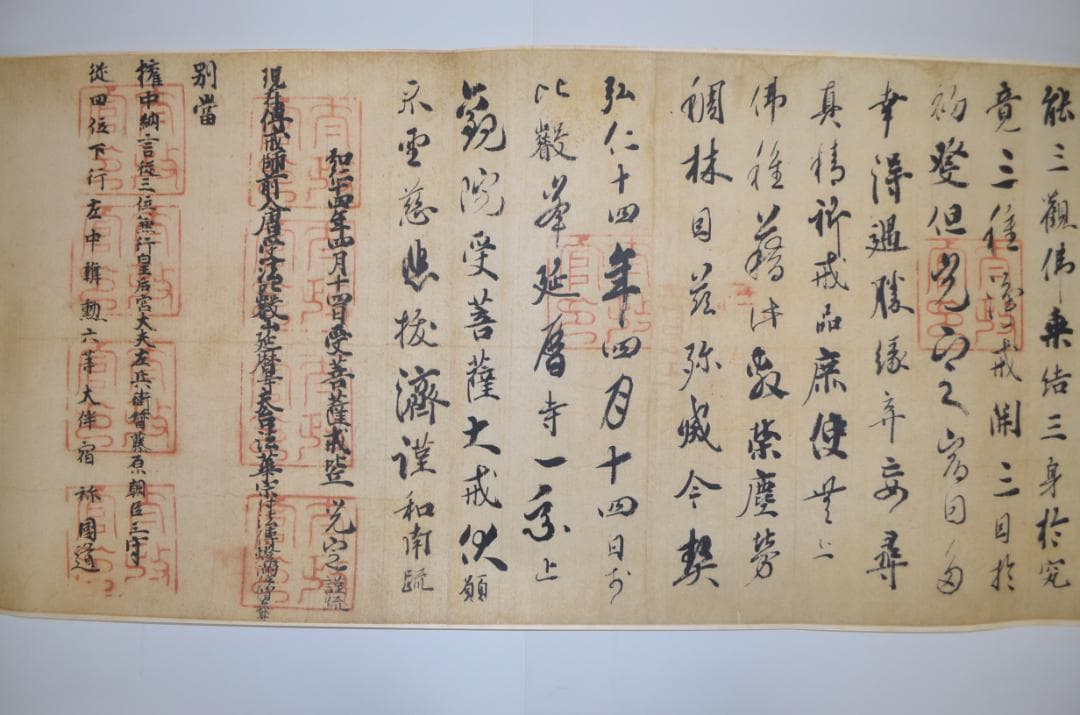 能三觀佛乗結三身於究
竟三種淨戒開三目於
初發但光定宿因多
幸得遇勝縁弃妄尋
真精祈戒品庶使无上
佛種藉此敷榮塵勞
稠林目茲殄滅今契
弘仁十四年四月十四日於
比叡峯延暦寺一乗止
觀院受菩薩大戒伏願
不虚慈悲拔濟謹和南疏
弘仁十四年四月十四日受菩薩戒僧 光定 謹疏
現在傳戒師前入唐受法比叡山延暦寺天台法華宗付法傳燈滿位僧
別當
權中納言從三位兼行皇后宮大夫左兵衛督藤原朝臣三守
從四位下行左中辨勳六等大伴宿祢國道